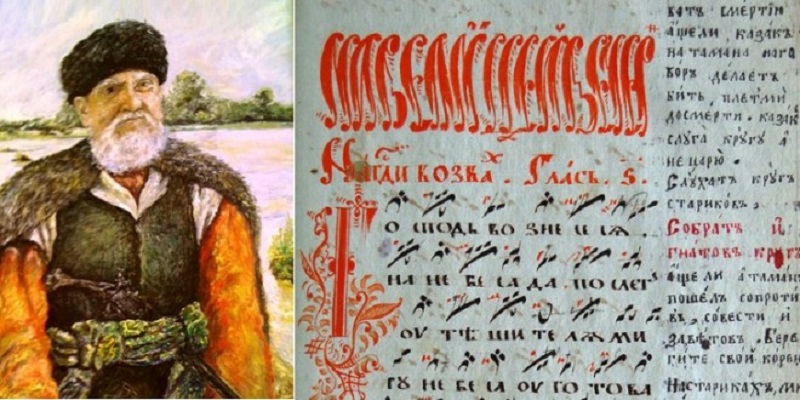 На Гди возвах. Гласъ. ѕ.
Г
о сподь во зне се ся .
на не бе са да по слет
оу тѣ ши те ля ми
гу не бе са оу го това
вать смертию
ащели казак
на тамана наго
воръ делаетъ
бить плетми
досмерти. казак
слуга кругу а
не царю.
Слухатъ кругъ
стариковъ.
Собратъ И
гнатовъ кругъ
ащели атаман
пошелъ сопроти
въ совести и
заветовъ. Бере
гите свой
Настариках,